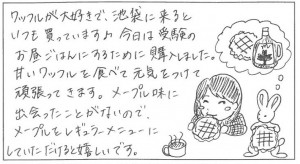 ワッフルが大好きで、池袋に来ると
いつも買っています♪ 今日は受験の
お昼ごはんにするために購入しました。
甘いワッフルを食べて元気をつけて
頑張ってきます。メープル味に
出会ったことがないので、
メープルもレギュラーメニューに
していただけると嬉しいです。